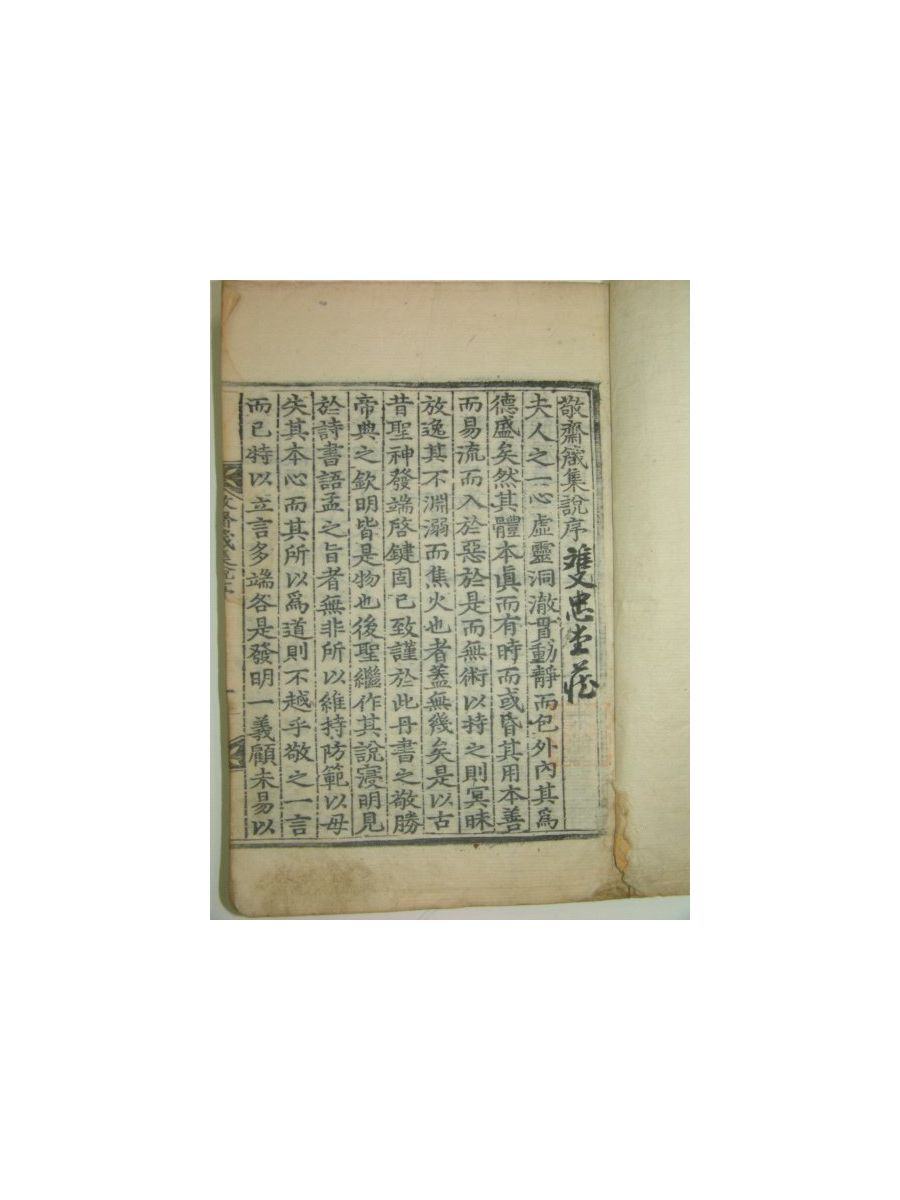 敬齋箴集說序 雙忠堂藏
夫人之一心虛靈洞澈貫動靜而包外內其爲
德盛矣然其體本眞而有時而或昏其用本善
而易流而入於惡於是而無術以持之則冥昧
放逸其不淵溺而焦火也者蓋無幾矣是以古
昔聖神發端啓鍵固已致謹於此丹書之敬勝
帝典之欽明皆是物也後聖繼作其說寖明見
於詩書語孟之旨者無非所以維持防範以毋
失其本心而其所以爲道則不越乎敬之一言
而已特以立言多端各是發明一義顧未易以
敬齋箴集說序